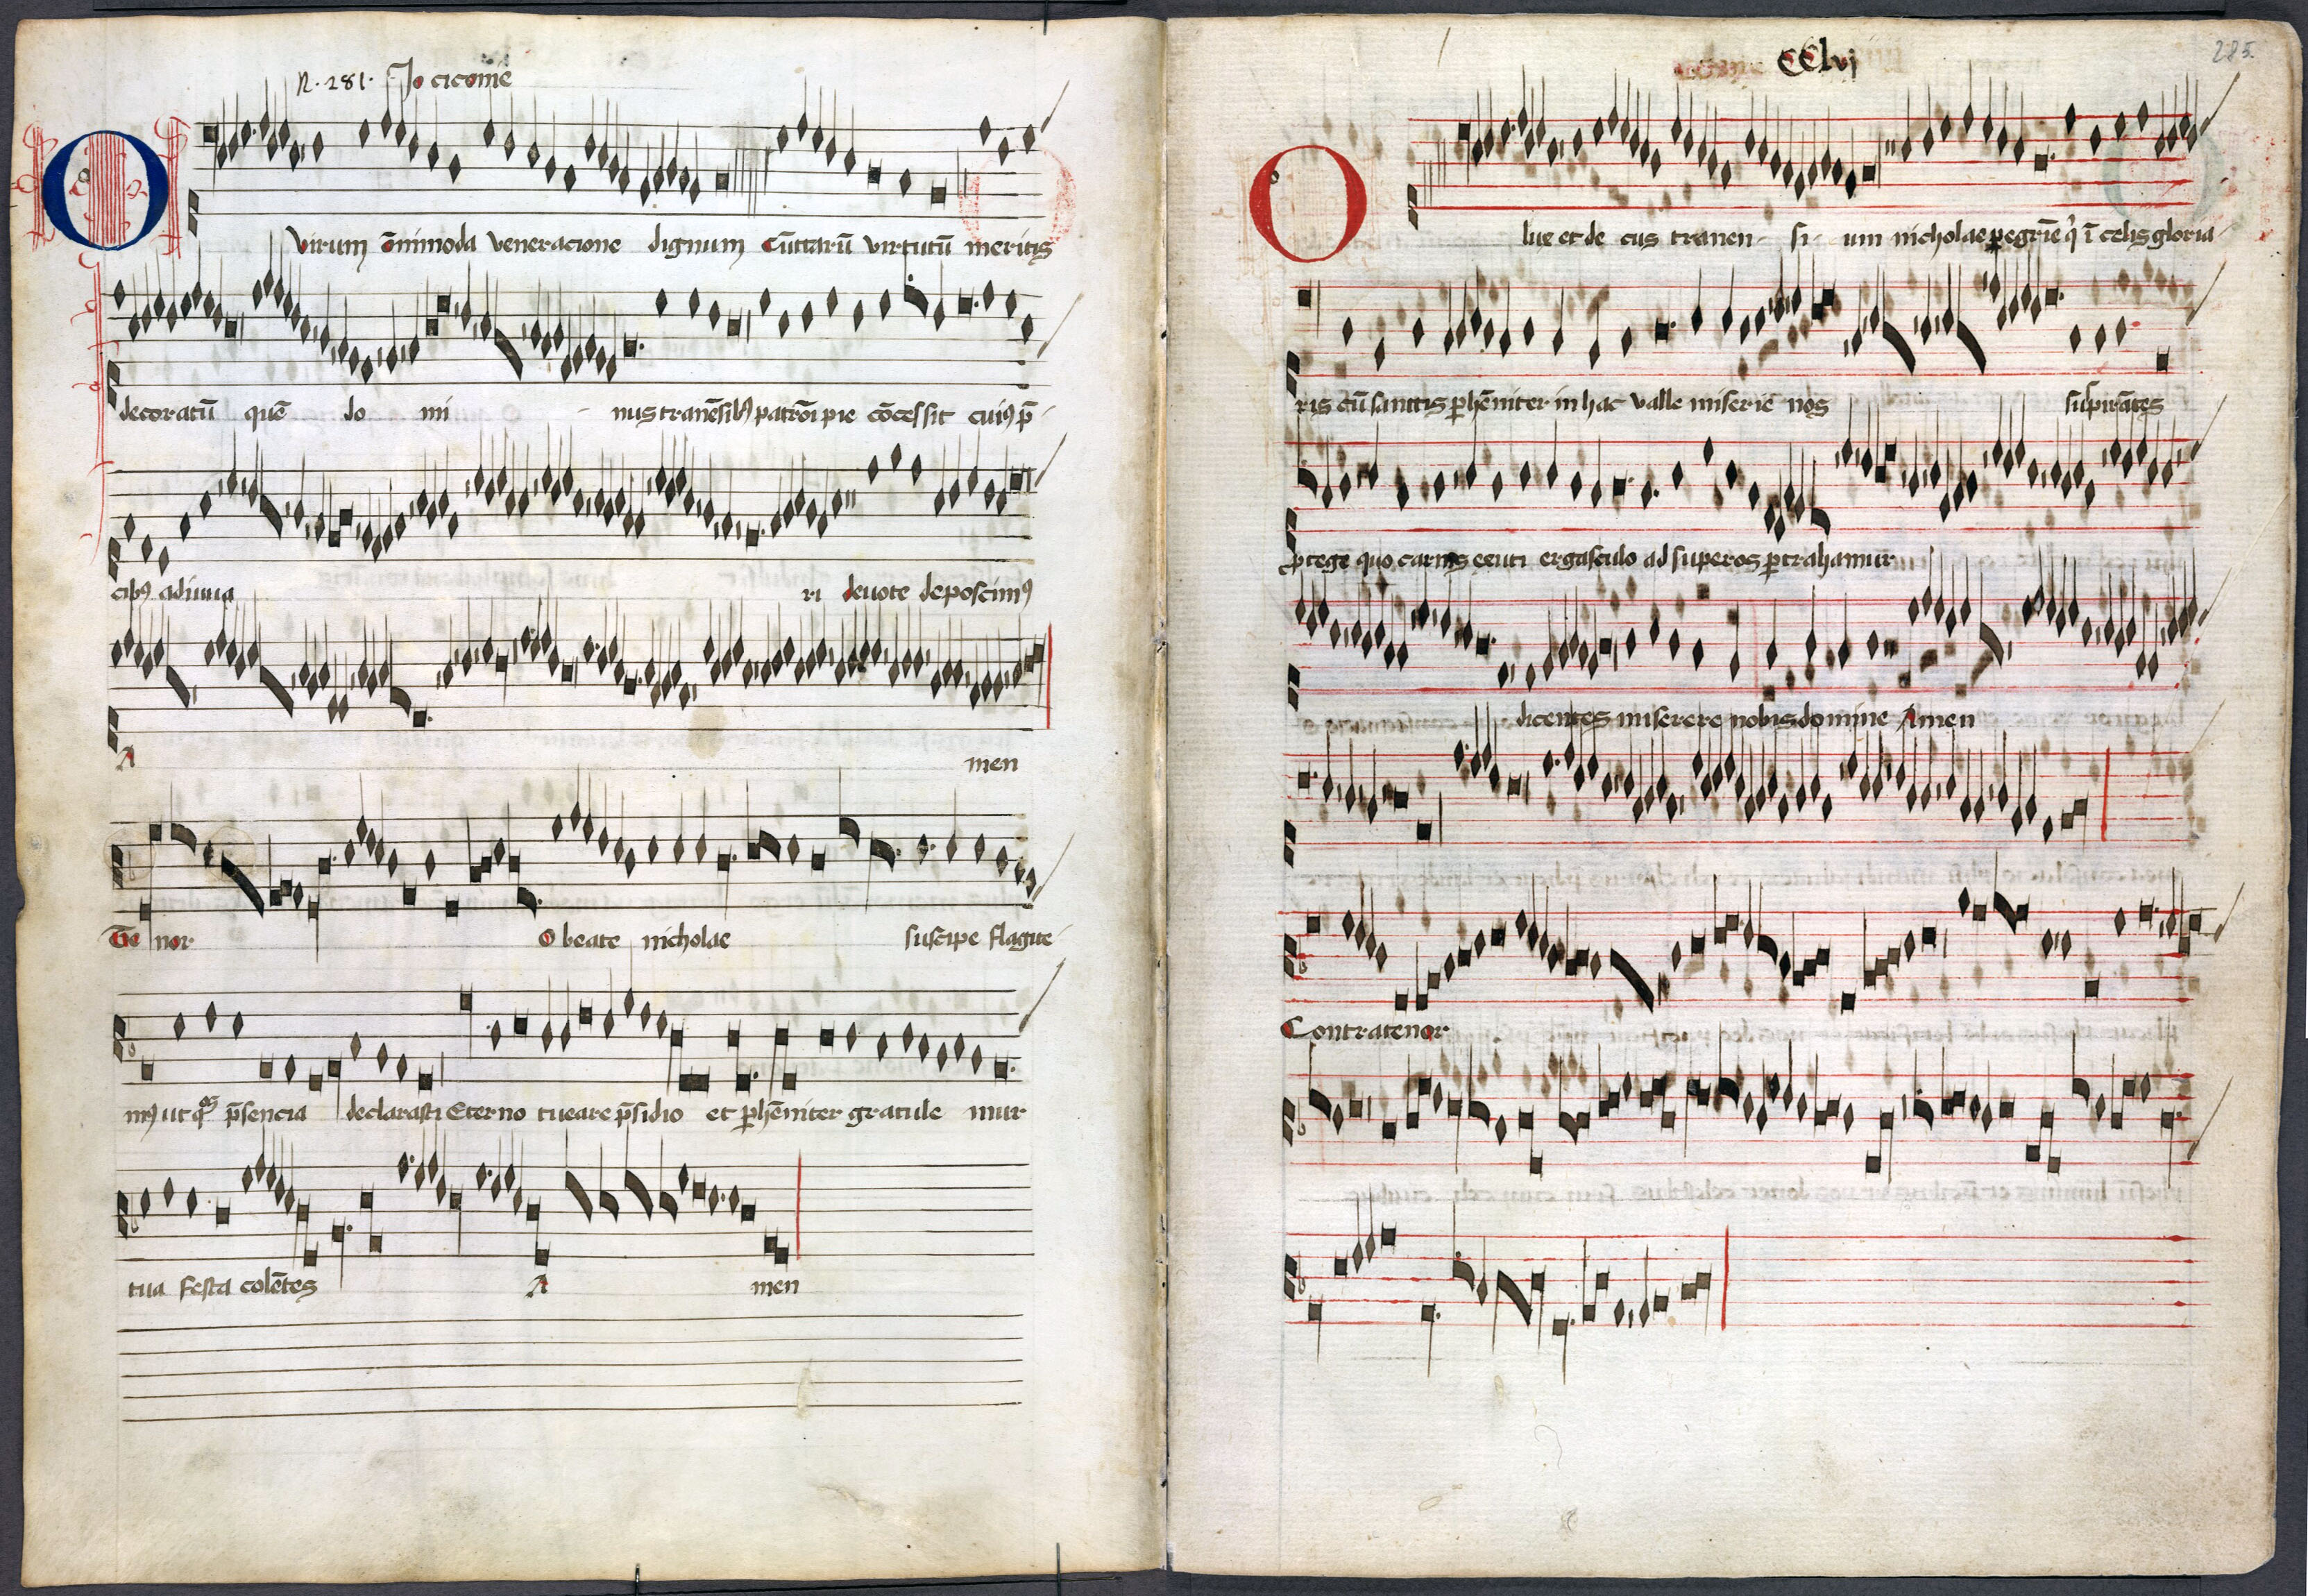 R. 281. Jo cicome
O virum õnimoda veneracione dignum Cũttarũ virtutũ meritis
decoratũ quẽ do mi - nus tranẽsibꝫ patrõi pie cõcessit cuiꝰ p̃
cibꝫ adiuua ri deuote deposcimꝰ
A men
Te nor O beate nicholae suscipe flagite
mꝰ ut p̃sencia declarasti Eterno tueare p̃sidio et ꝑhẽniter gratule mur
tua festa colẽtes A men
CClvj 285.
O lux et de cus tranen - si - um nicholae ꝑegrie q̉ ĩ celis gloria
ris cũ sanctis ꝑhẽniter in hac valle miserie nos suspirãtes
ꝓtege quo carnis ceuti ergasculo ad superos ꝑtrahamur
dicentes miserere nobis domine Amen
Contratenor